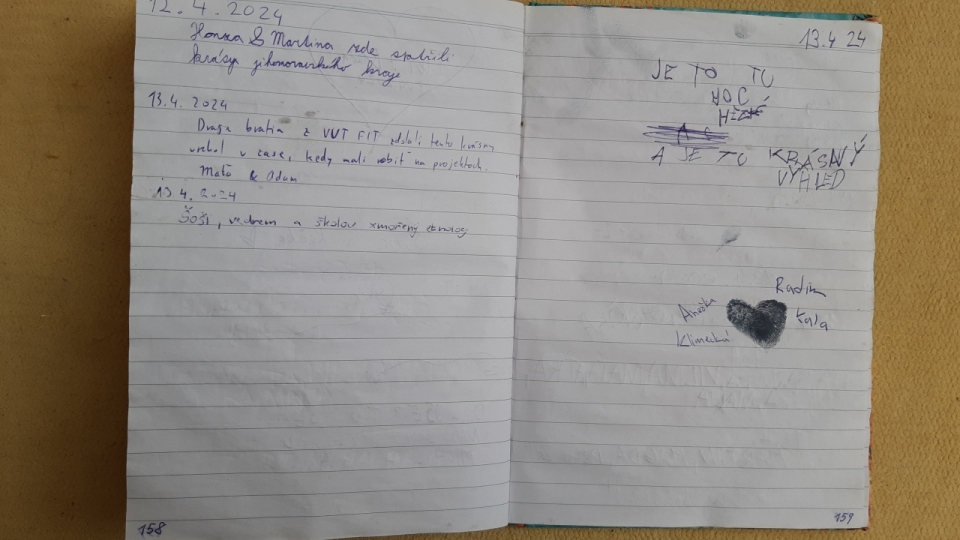 12.4.2024
Honza & Martina zde spatřili
krásy jihomoravského kraje
13.4. 2024
Dvaja bratia z VUT FIT zdolali tento krásny
vrchol v čase, kedy mali robiť na projektoch.
Maťo & Adam
13.4. 2024
Šoši, vedrem a školou zmořený
158
13.4 24
JE TO TU
MOC
HEZKÉ
A JE TU KRÁSNÝ
VÝHLED
Radim
Anežka
Kala
Klimecká
159